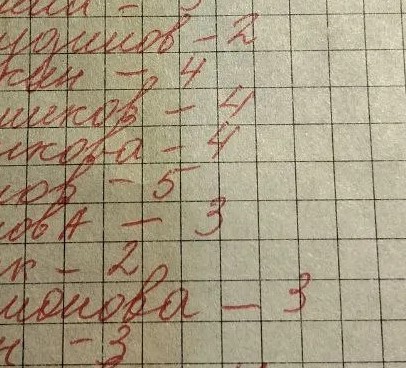 удинов - 2
кан - 4
шиков - 4
икова - 4
нов - 5
нова А - 3
к - 2
монова - 3
н - 3